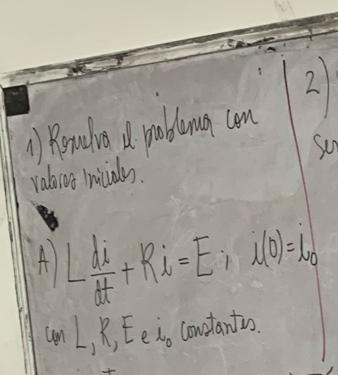 1) Resuelva el problema con
valores iniciales.
A) L di/dt + Ri = E ; i(0) = i₀
con L, R, E e i₀ constantes.
2)